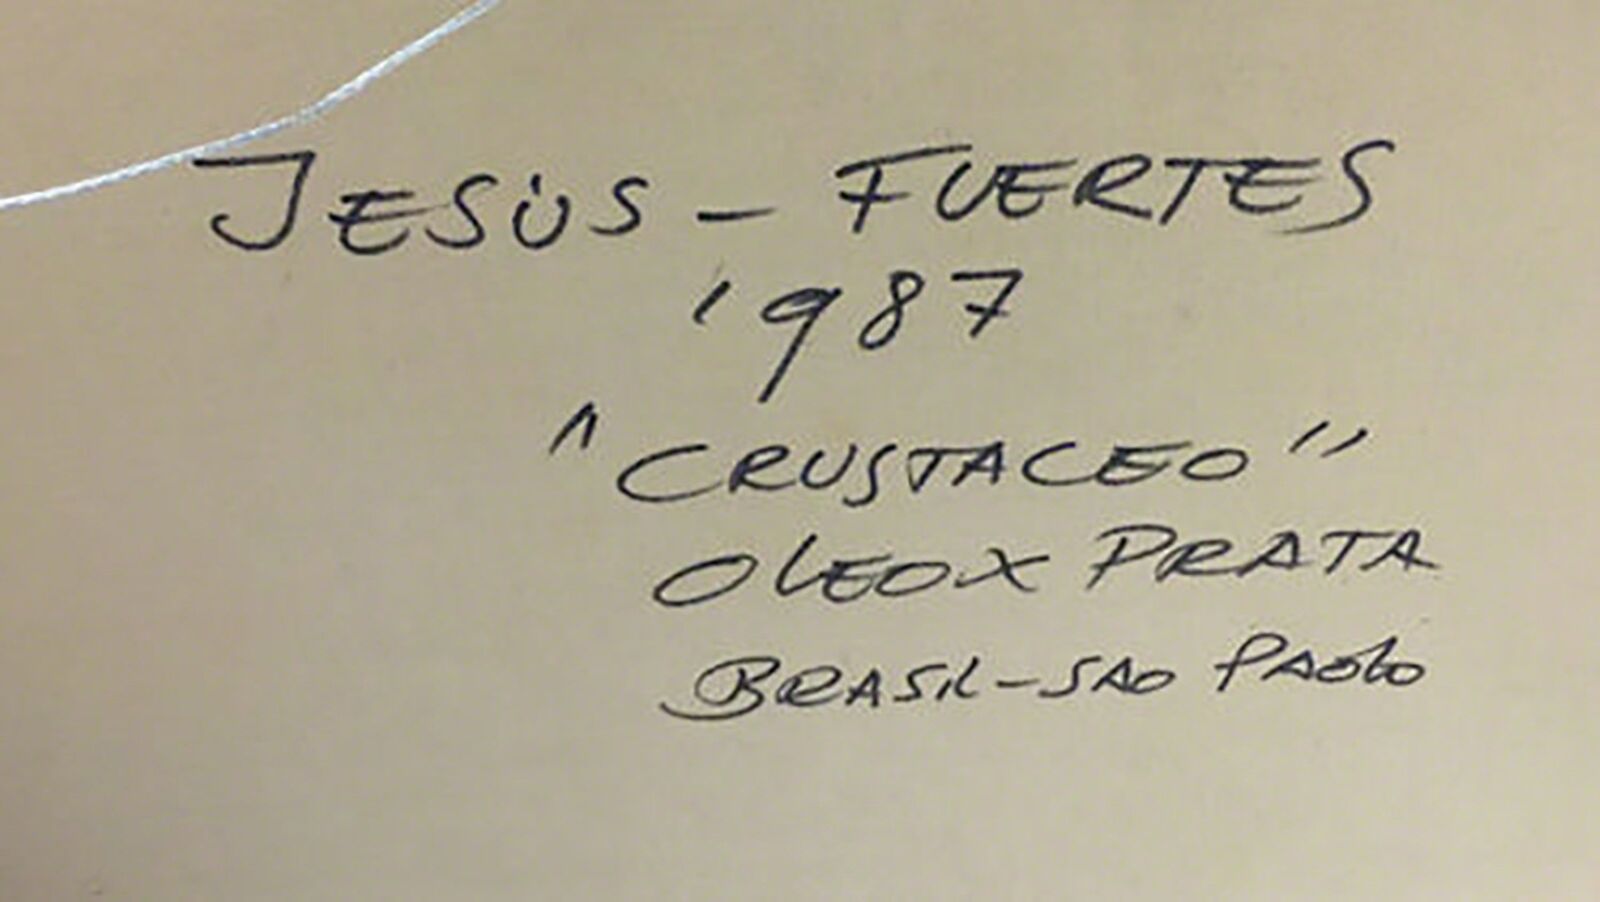 JESÚS - FUERTES
1987
"CRUSTACEO"
OLEO X PRATA
BRASIL-SAO PAOLO